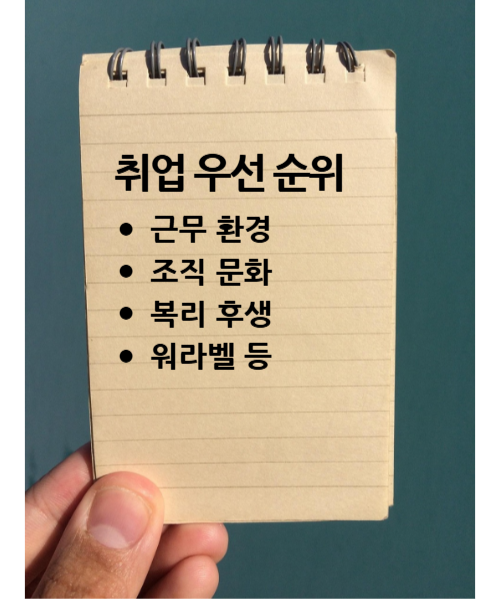 취업 우선 순위
• 근무 환경
• 조직 문화
• 복리 후생
• 워라벨 등